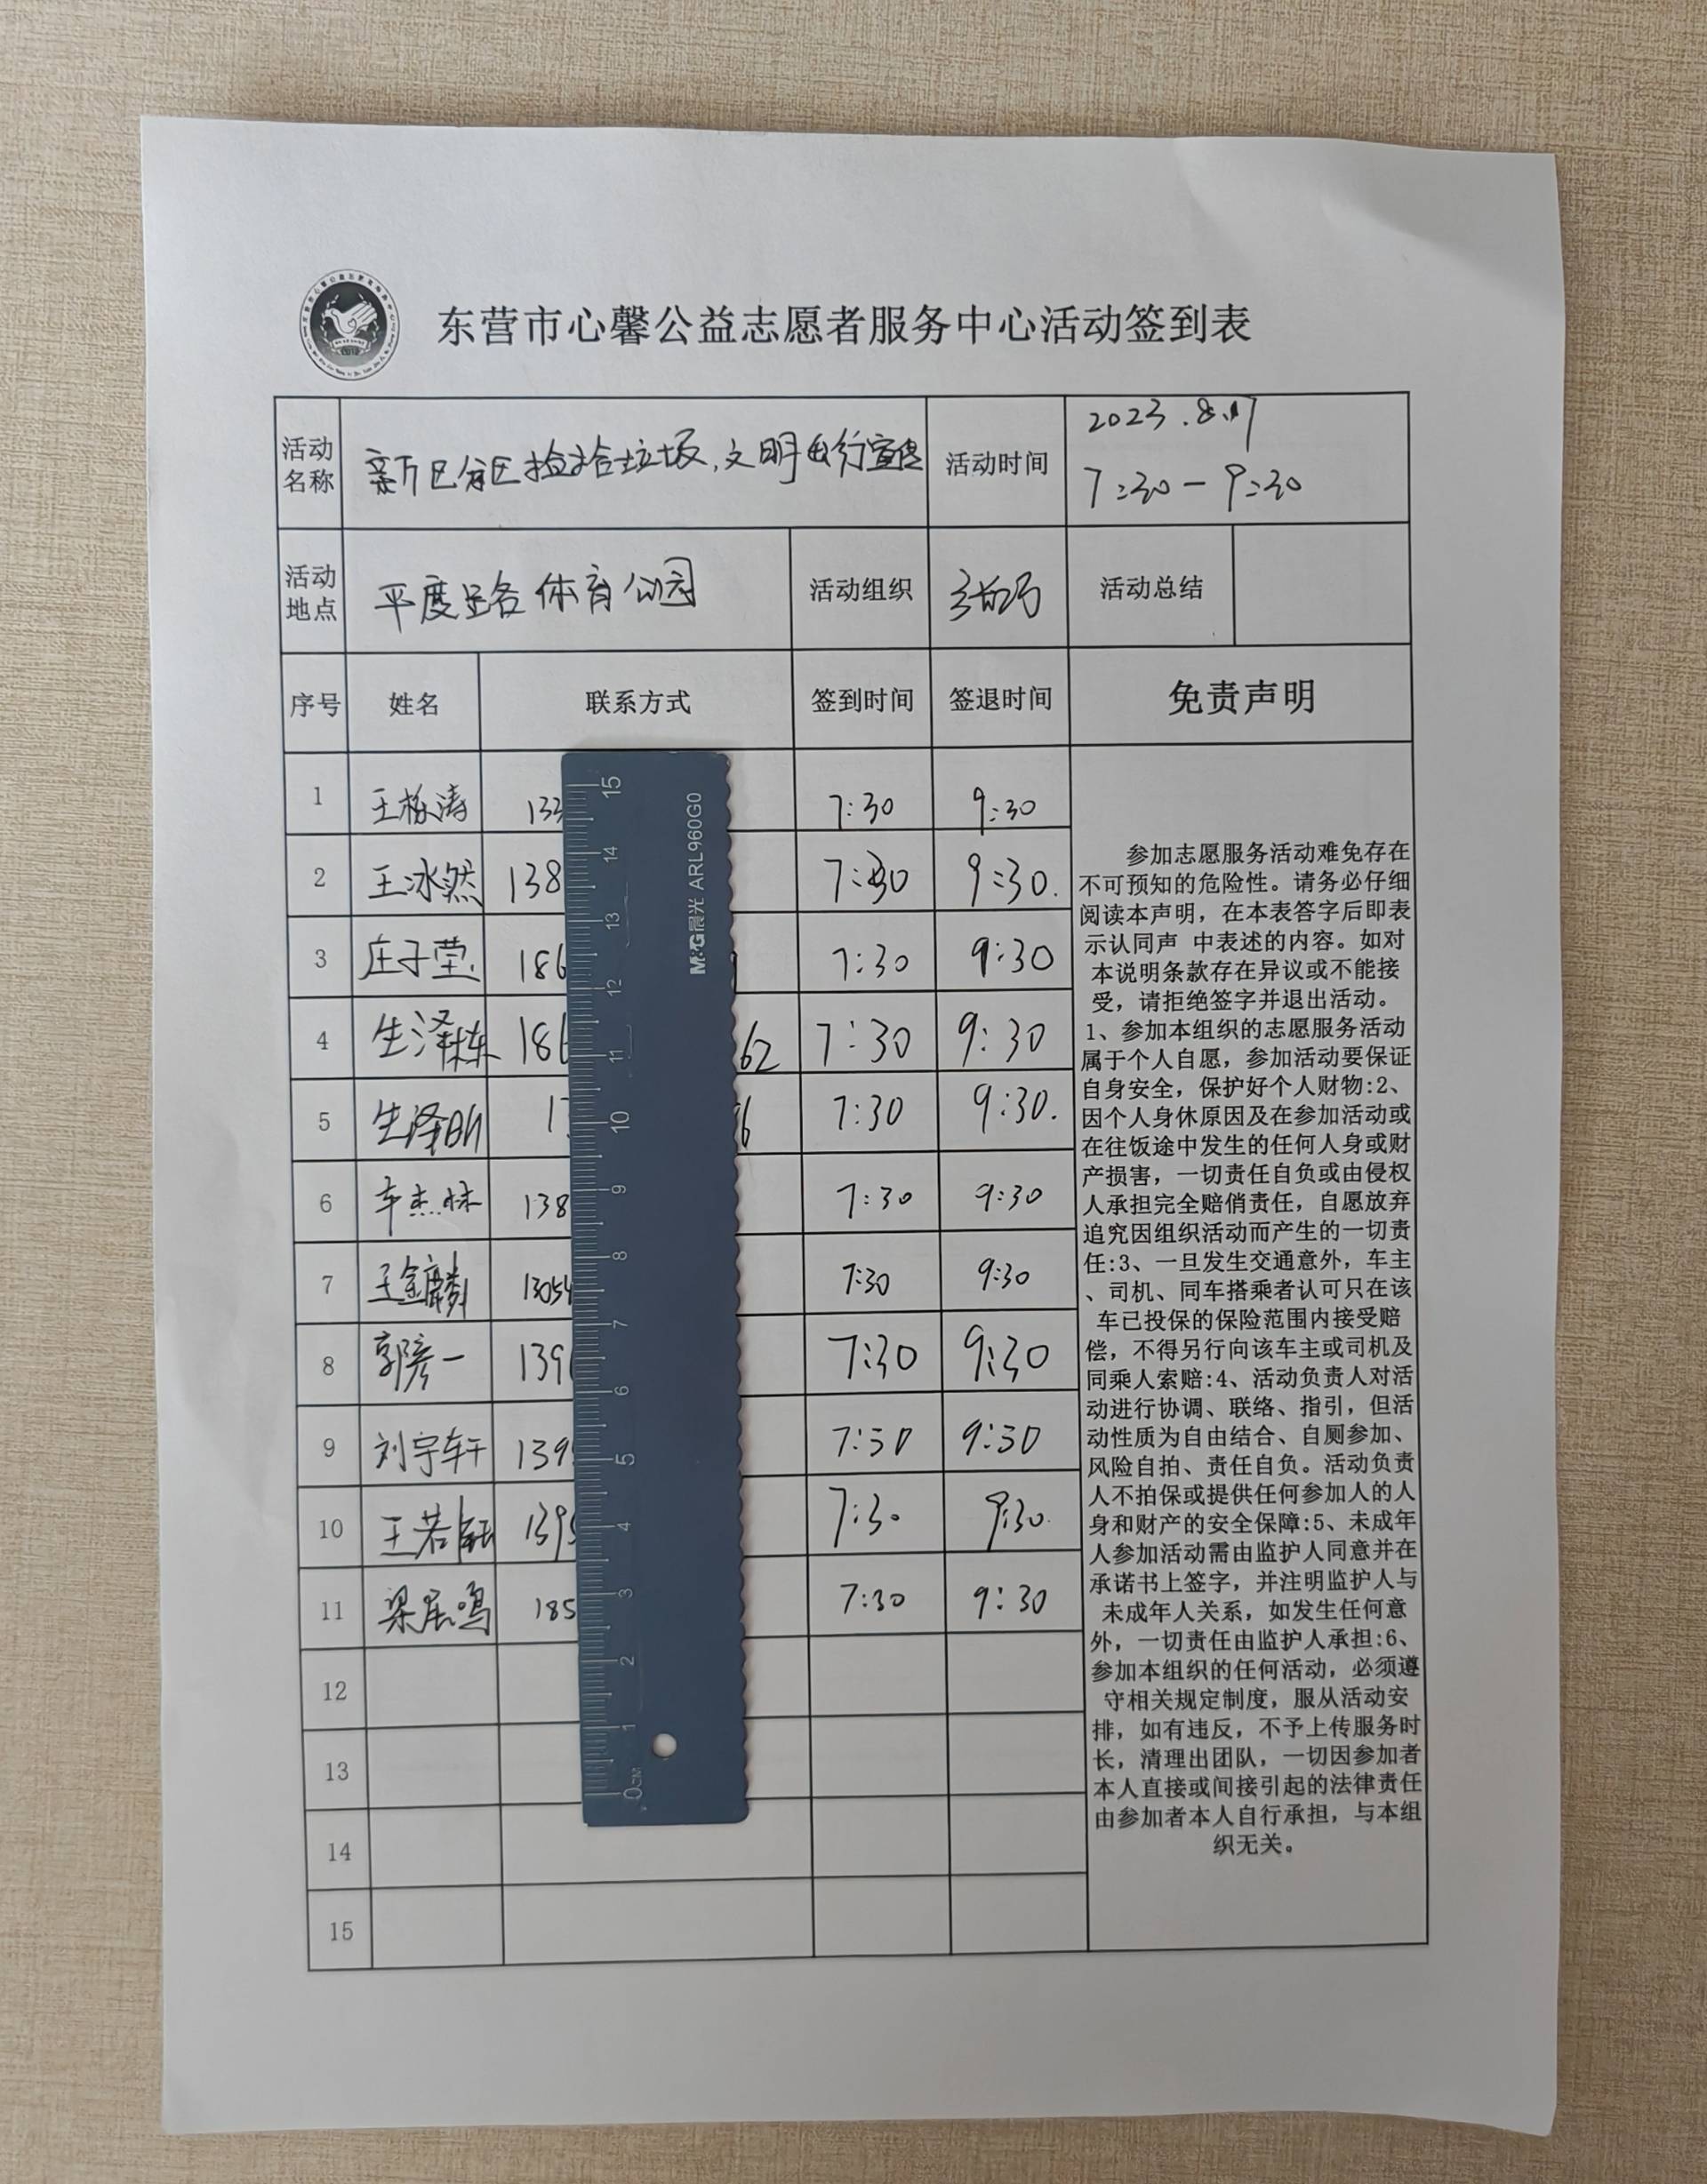 东营市心馨公益志愿者服务中心活动签到表
活动名称 新区分区捡拾垃圾,文明出行宣传 活动时间 2023.8.17
7:30-9:30
活动地点 平度路体育公园 活动组织 活动总结
序号 姓名 联系方式 签到时间 签退时间 免责声明
1 王栋涛 133 7:30 9:30
2 王冰然 138 7:30 9:30.
3 庄子莹 186 7:30 9:30
4 生泽栋 186 62 7:30 9:30
5 生泽昕 1 6 7:30 9:30.
6 车杰林 138 7:30 9:30
7 王鑫麟 13054 7:30 9:30
8 郭彦一 139 7:30 9:30
9 刘宇轩 139 7:30 9:30
10 王若 1395 7:30 9:30
11 梁居鸣 185 7:30 9:30
12
13
14
15
参加志愿服务活动难免存在
不可预知的危险性。请务必仔细
阅读本声明，在本表答字后即表
示认同声 中表述的内容。如对
本说明条款存在异议或不能接
受，请拒绝签字并退出活动。
1、参加本组织的志愿服务活动
属于个人自愿，参加活动要保证
自身安全，保护好个人财物:2、
因个人身休原因及在参加活动或
在往饭途中发生的任何人身或财
产损害，一切责任自负或由侵权
人承担完全赔俏责任，自愿放弃
追究因组织活动而产生的一切责
任:3、一旦发生交通意外，车主
、司机、同车搭乘者认可只在该
车已投保的保险范围内接受赔
偿，不得另行向该车主或司机及
同乘人索赔:4、活动负责人对活
动进行协调、联络、指引，但活
动性质为自由结合、自厕参加、
风险自拍、责任自负。活动负责
人不拍保或提供任何参加人的人
身和财产的安全保障:5、未成年
人参加活动需由监护人同意并在
承诺书上签字，并注明监护人与
未成年人关系，如发生任何意
外，一切责任由监护人承担:6、
参加本组织的任何活动，必须遵
守相关规定制度，服从活动安
排，如有违反，不予上传服务时
长，清理出团队，一切因参加者
本人直接或间接引起的法律责任
由参加者本人自行承担，与本组
织无关。
M&G晨光 ARL960G0
15
14
13
12
11
10
9
8
7
6
5
4
3
2
1
0CM